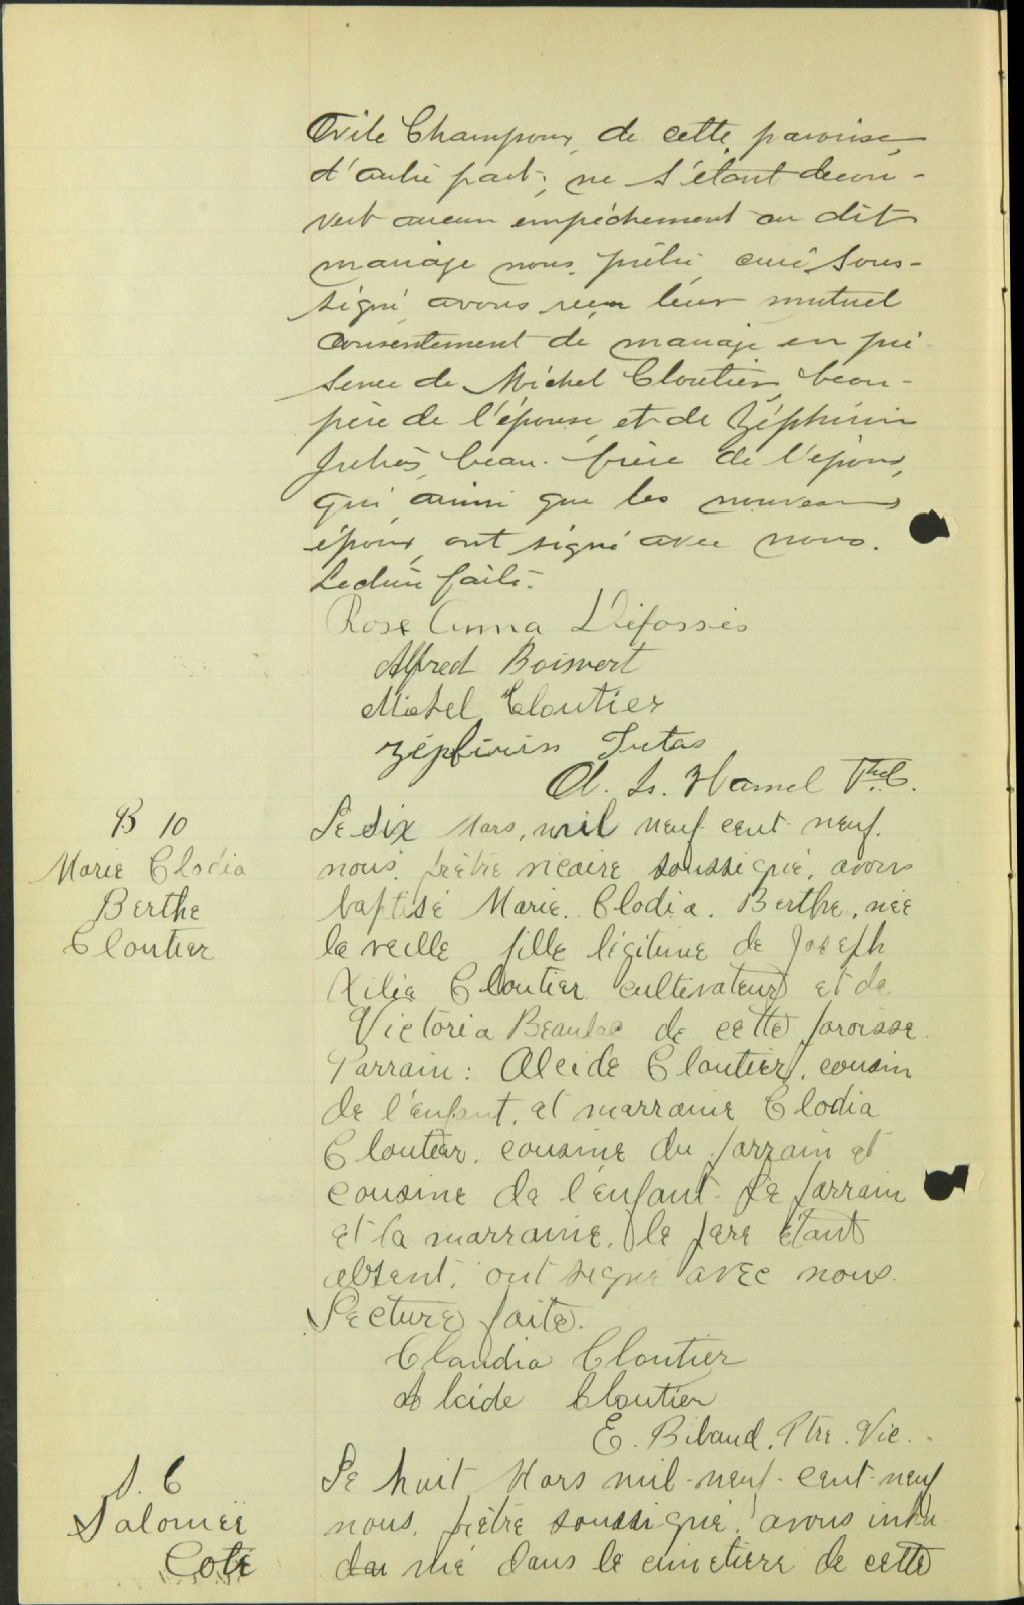 Ovile Champoux, de cette paroisse,
d'autre part; ne s'étant décou-
vert aucun empêchement au dit
mariage nous, prêtre, curé sous-
signé, avons reçu leur mutuel
consentement de mariage en pré-
sence de Michel Cloutier, beau-
père de l'épouse, et de Zéphirin
Jutras, beau-frère de l'époux,
qui, ainsi que les nouveaux
époux, ont signé avec nous.
Lecture faite.
Rose Anna Défossés
Alfred Boisvert
Michel Cloutier
Zéphirin Jutas
A. Ls. Hamel Ptre C.
B 10
Marie Clodia
Berthe
Cloutier
Le six Mars, mil neuf cent neuf,
nous, prêtre vicaire soussigné, avons
baptisé Marie, Clodia, Berthe, née
la veille fille légitime de Joseph
Xilia Cloutier cultivateur et de
Victoria Beaulac de cette paroisse.
Parrain: Alcide Cloutier, cousin
de l'enfant, et marraine Clodia
Cloutier, cousine du parrain et
cousine de l'enfant. Le parrain
et la marraine, le père étant
absent, ont signé avec nous.
Lecture faite.
Claudia Cloutier
Alcide Cloutier
E. Bibaud, Ptre. Vic.
S. 6
Salomée
Coté
Le huit Mars mil-neuf-cent-neuf
nous, prêtre soussigné, avons inhu
mé dans le cimetière de cette